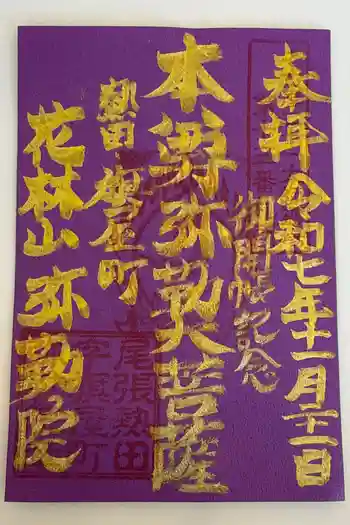 奉拝 令和七年十一月
御開帳記念
本尊弥勒大菩薩
熱田 旗屋町
花林山 弥勒院
尾張熱田
字旗屋町